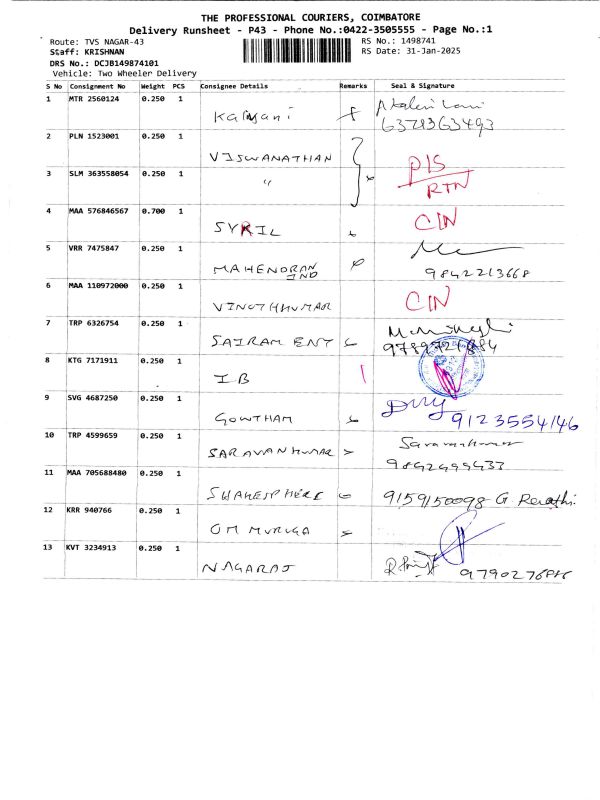 THE PROFESSIONAL COURIERS, COIMBATORE
Delivery Runsheet - P43 - Phone No.:0422-3505555 - Page No.:1
Route: TVS NAGAR-43 RS No.: 1498741
Staff: KRISHNAN RS Date: 31-Jan-2025
DRS No.: DCJB149874101
Vehicle: Two Wheeler Delivery
S No Consignment No Weight PCS Consignee Details Remarks Seal & Signature
1 MTR 2560124 0.250 1
Kalyani
6371363493
2 PLN 1523001 0.250 1
VISWANATHAN
3 SLM 363558054 0.250 1
" DIS
RTN
4 MAA 576846567 0.700 1
SYRIL CIN
5 VRR 7475847 0.250 1
MAHENDRAN
IND 9842213668
6 MAA 110972000 0.250 1
VINOTHKUMAR CIN
7 TRP 6326754 0.250 1
SAIRAM ENT
8 KTG 7171911 0.250 1
IB
9 SVG 4687250 0.250 1
GOWTHAM 9123554146
10 TRP 4599659 0.250 1
SARAVANKUMAR Saravanakumar
11 MAA 705688480 0.250 1
SHAKESPHERE 9159150098 G. Revathi
12 KRR 940766 0.250 1
OM MURUGA
13 KVT 3234913 0.250 1
NAGARAJ